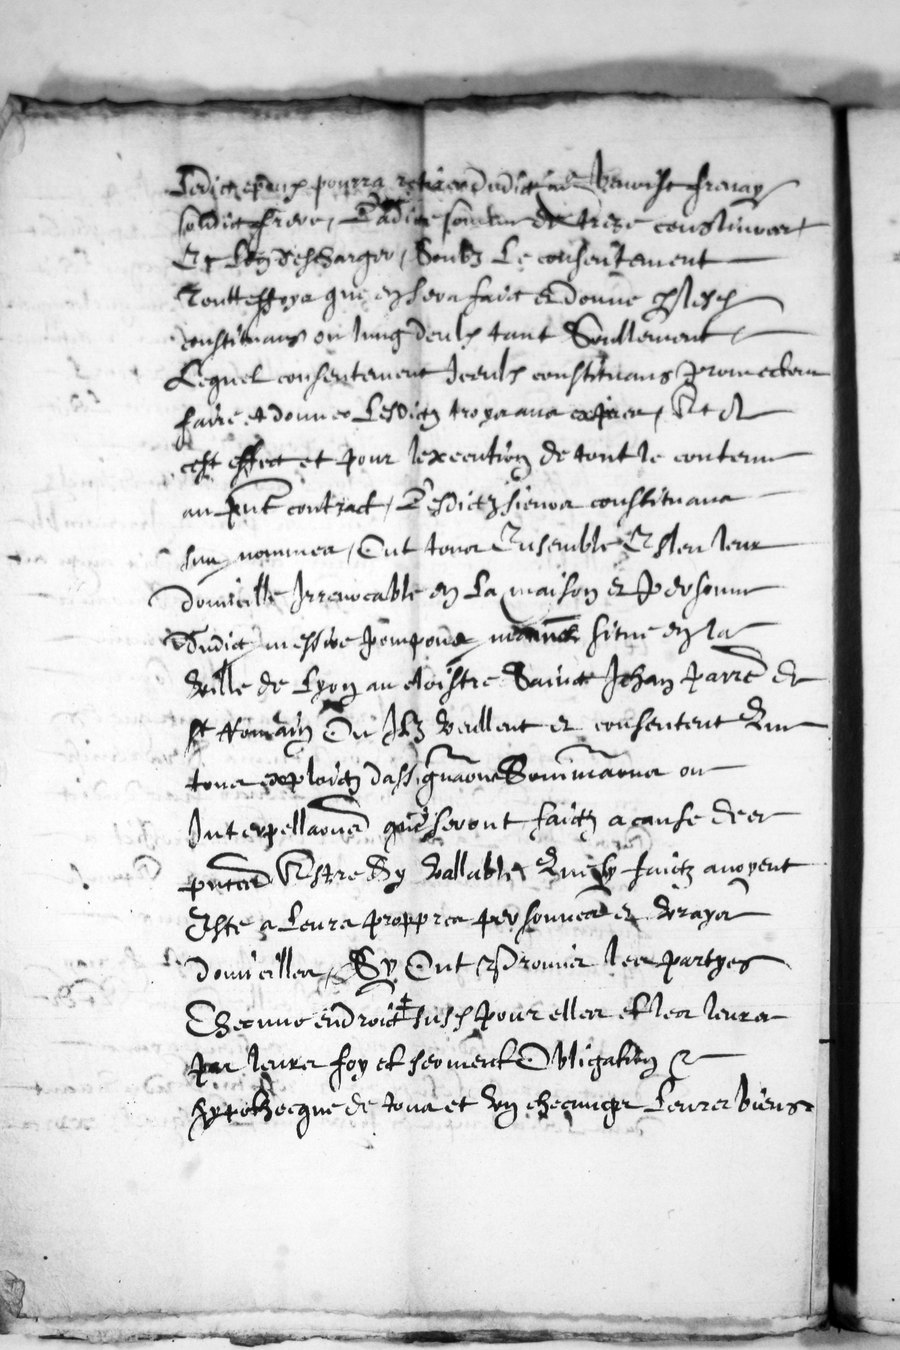 Ledict espoux pourra retirer dudict Benoist frenay
soldict frere, Ladicte somme de treze cens livres
Et len descharger, Soubz Le consentement
Touttesfoys que en sera faict et donne
constituans ou lung deulx tant Seullement
Lequel consentement Iceulx constituans promectent
faire et donner Lesdictz troys ans expirez, Et A
cest effect et pour lexecution de tout le contenu
au pnt contract, Lesdictz sieurs constituans
sus nommes, Ont tous Ensemble Esleu leur
domicille Irrevocable en La maison et personne
Dudict messire pompone situe en la
Ville de Lyon au cloistre Sainct Jehan parre de
st Romain Ou Ilz veullent et consentent Que
tous exploictz dassignaons Sommaons ou
Interpellaons que seront faictz a cause des
pntes Estre Sy vallables Que sy faictz avoyent
Este a Leurs proppres personnes et vrays
domicilles, Sy Ont Promis les partyes
Checune endroict + soy pour elles et les leurs
par leurs foy et serment Obligation Et
hypothecque de tous et Ung checungs Leurs biens